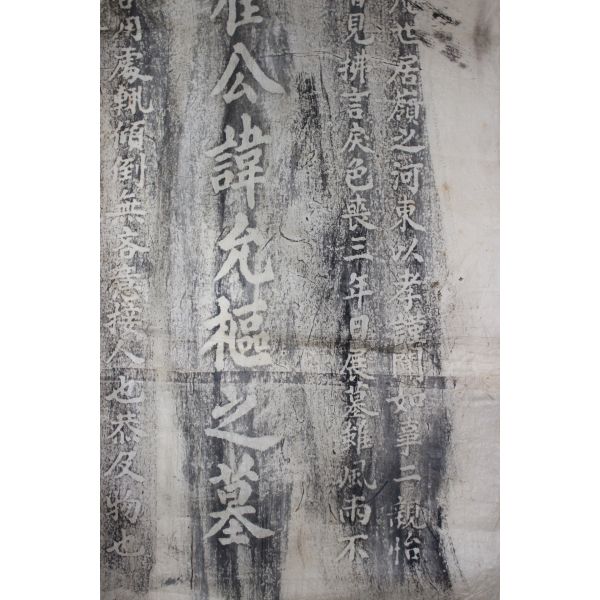 世居願之河東以孝諱聞如事二親怡
見拂言戾色喪三年日展墓雖風雨不
崔公諱允樞之墓
用處輒傾倒無吝意接人也恭及物也